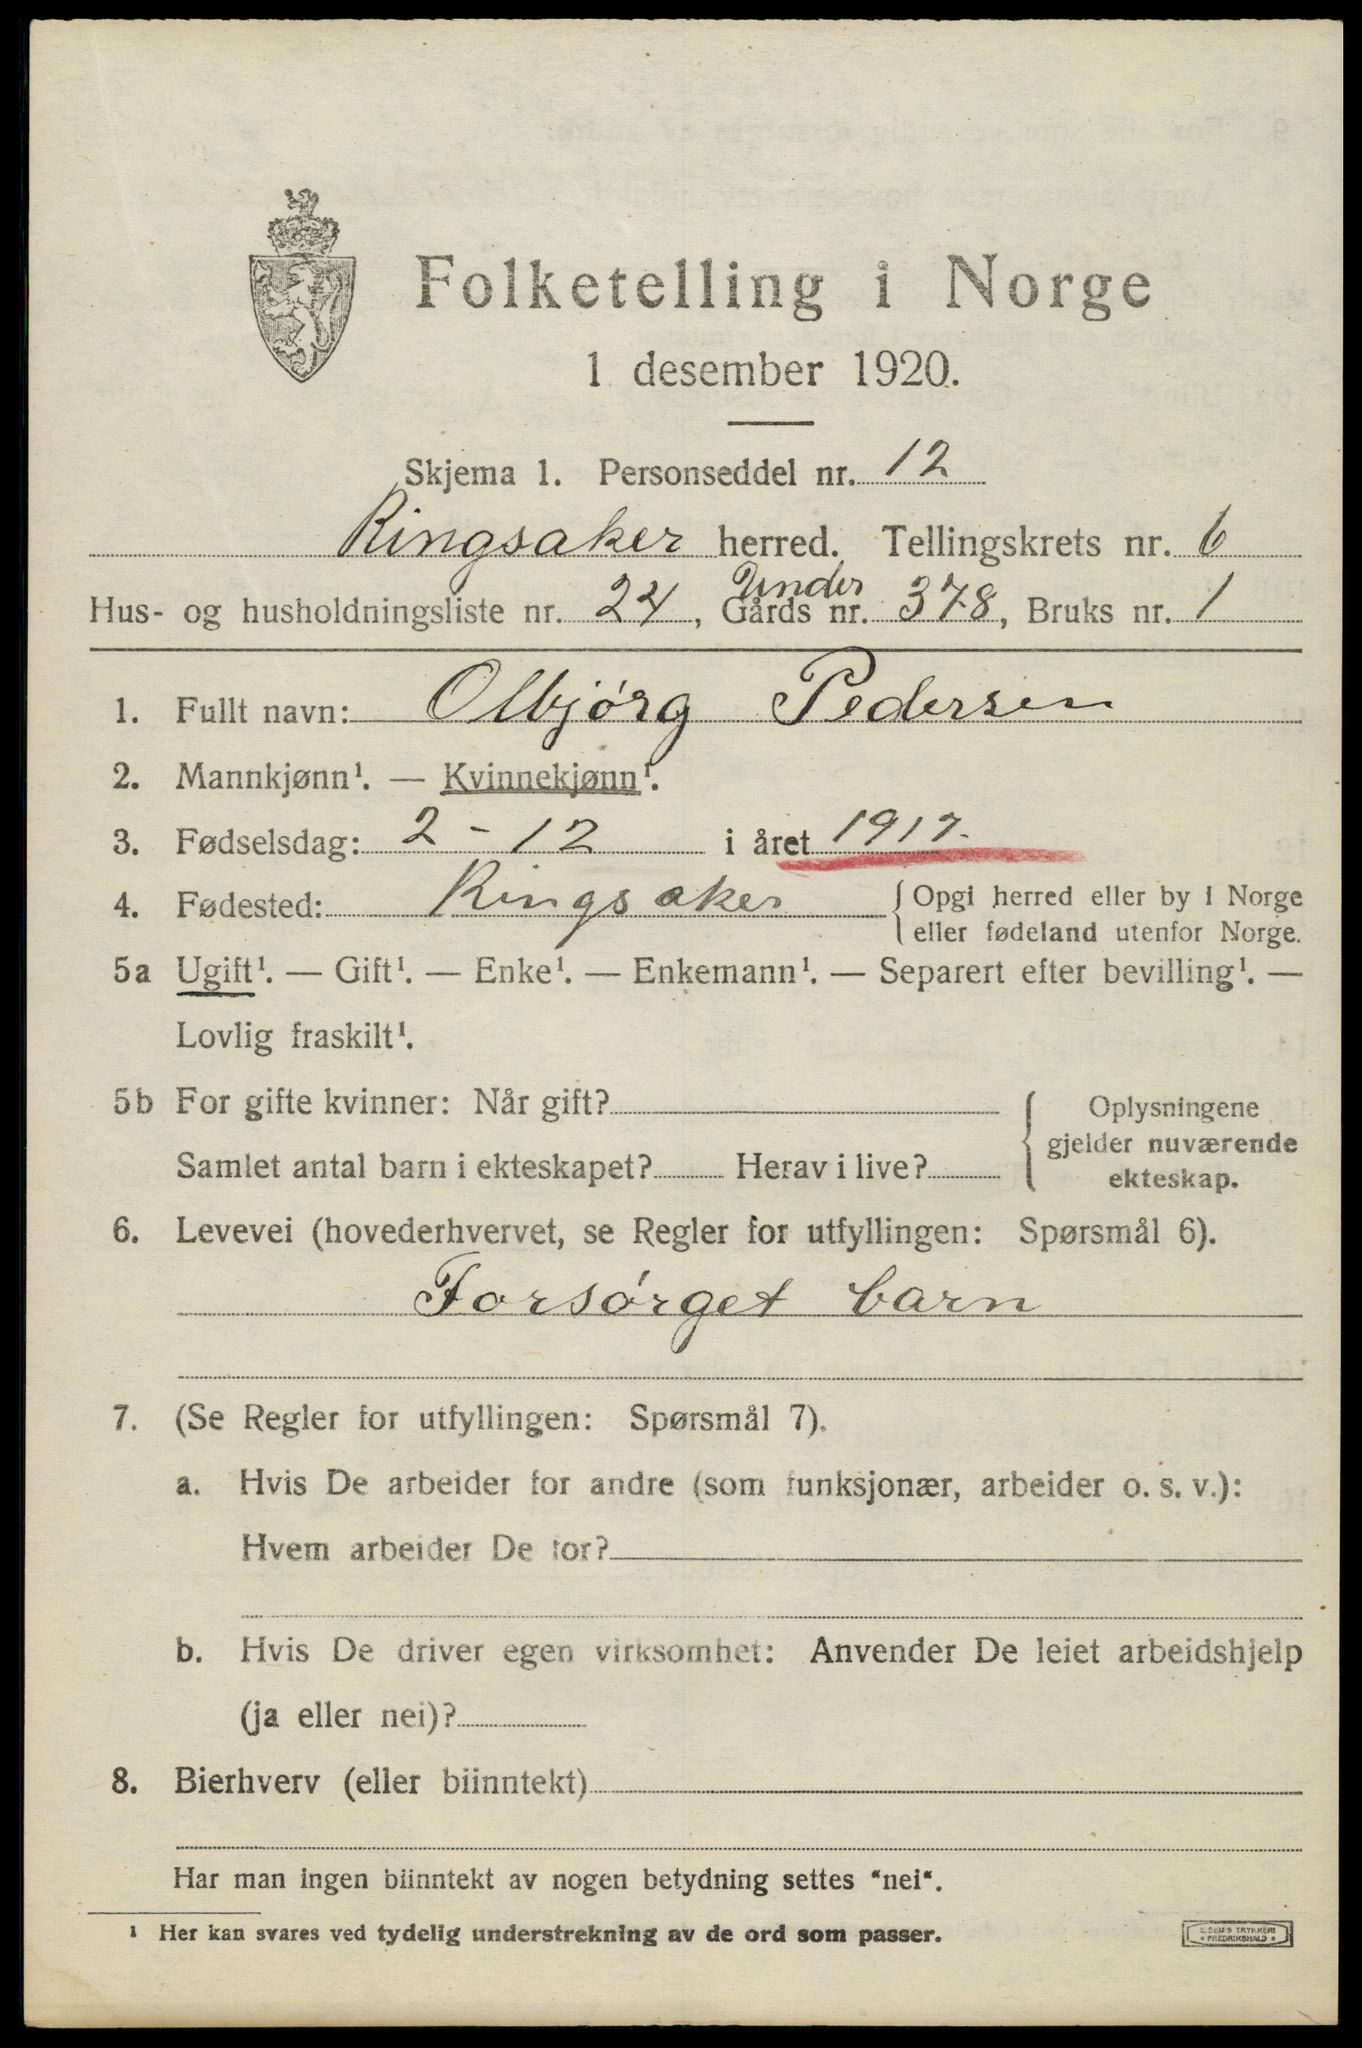 Folketelling i Norge
1 desember 1920.
Skjema 1. Personseddel nr. 12
Ringsaker herred. Tellingskrets nr. 6
Under
Hus- og husholdningsliste nr. 24, Gårds nr. 378, Bruks nr. 1
1. Fullt navn: Olbjørg Pedersen
2. Mannkjønn¹. — Kvinnekjønn¹.
3. Fødselsdag: 2 - 12 i året 1917.
4. Fødested: Ringsaker { Opgi herred eller by i Norge
eller fødeland utenfor Norge.
5a Ugift¹. — Gift¹. — Enke¹. — Enkemann¹. — Separert efter bevilling¹. —
Lovlig fraskilt¹.
5b For gifte kvinner: Når gift? { Oplysningene
gjelder nuværende
Samlet antal barn i ekteskapet? Herav i live? ekteskap.
6. Levevei (hovederhvervet, se Regler for utfyllingen: Spørsmål 6).
Forsørget barn
7. (Se Regler for utfyllingen: Spørsmål 7).
a. Hvis De arbeider for andre (som funksjonær, arbeider o. s. v.):
Hvem arbeider De for?
b. Hvis De driver egen virksomhet: Anvender De leiet arbeidshjelp
(ja eller nei)?
8. Bierhverv (eller biinntekt)
Har man ingen biinntekt av nogen betydning settes "nei".
¹ Her kan svares ved tydelig understrekning av de ord som passer.
E. SEMS TRYKKERI
* FREDRIKSHALD *